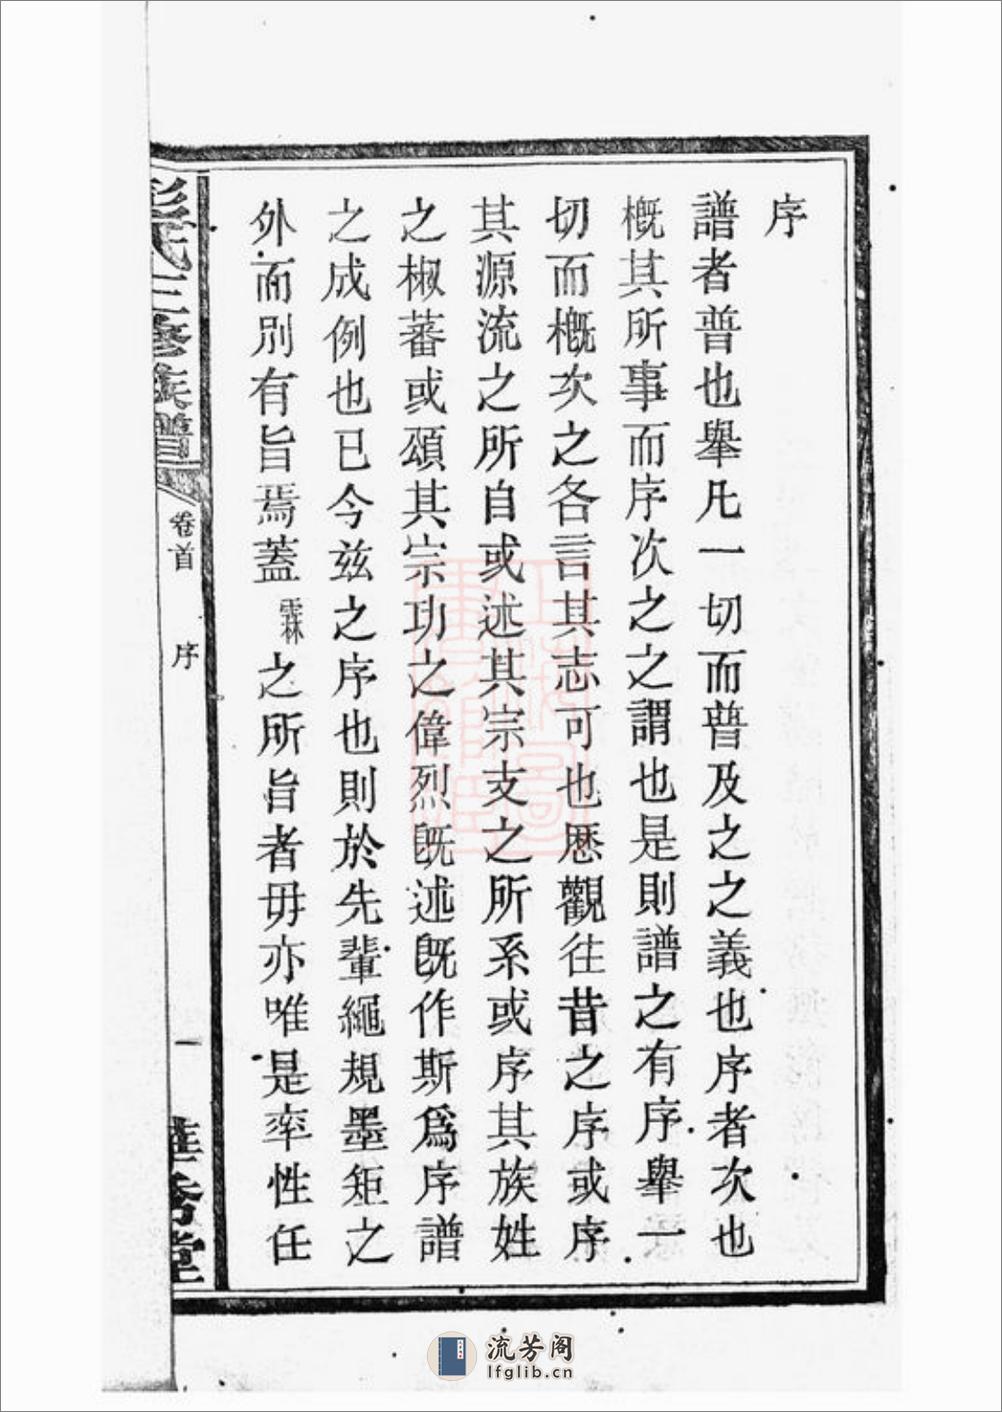 序
譜者普也舉凡一切而普及之之義也序者次也
槪其所事而序次之之謂也是則譜之有序舉一
切而槪次之各言其志可也歷觀往昔之序或序
其源流之所自或述其宗支之所系或序其族姓
之椒蕃或頌其宗功之偉烈旣述旣作斯爲序譜
之成例也已今茲之序也則於先輩繩規墨矩之
外而別有旨焉蓋霖之所旨者毋亦唯是率性任
彭氏三修族譜
卷首
序
一
秀堂
流芳阁
lfglib.cn